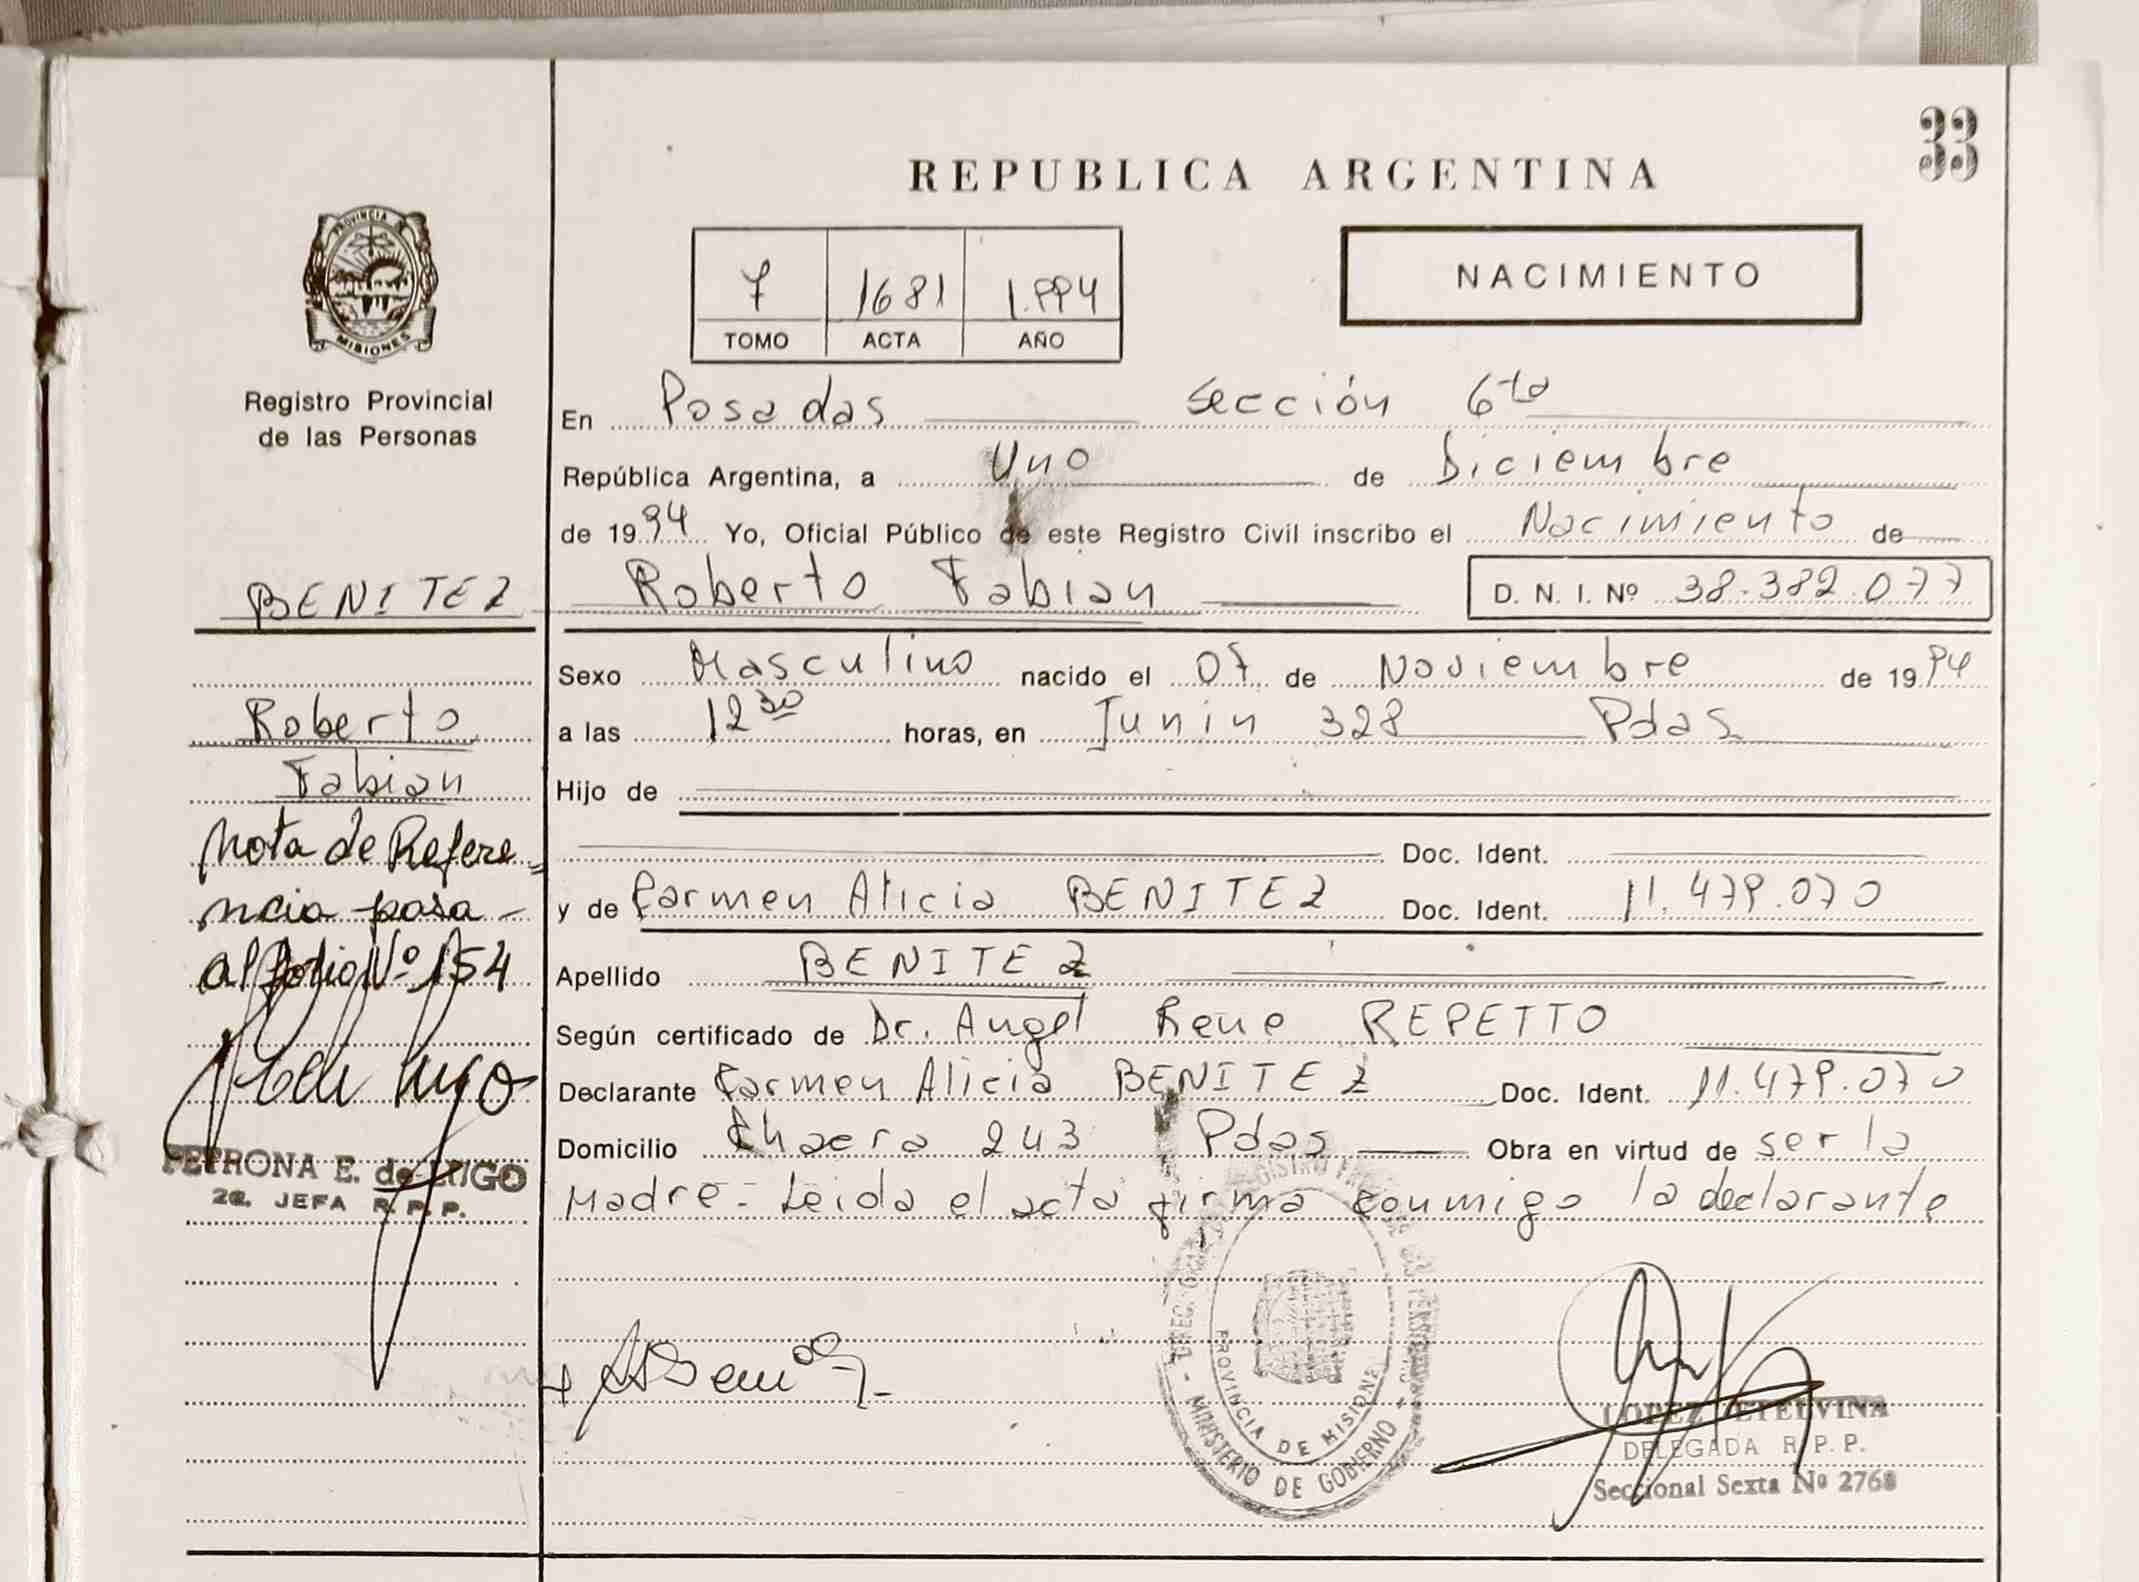 33
REPUBLICA ARGENTINA
PROVINCIA DE
MISIONES
Registro Provincial
de las Personas
7 1681 1.994
TOMO ACTA AÑO
NACIMIENTO
En Posadas Sección 6ta
República Argentina, a Uno de Diciembre
de 1994 Yo, Oficial Público de este Registro Civil inscribo el Nacimiento de
BENITEZ Roberto Fabian D. N. I. Nº 38.382.077
Sexo Masculino nacido el 07 de Noviembre de 1994
Roberto
a las 12 30 horas, en Junin 328 Pdas
Fabian
Hijo de
Nota de Refere
Doc. Ident.
ncia pasa
y de Carmen Alicia BENITEZ Doc. Ident. 11.479.070
al folio Nº 154
Apellido BENITEZ
Según certificado de Dr. Angel Rene REPETTO
Declarante Carmen Alicia BENITEZ Doc. Ident. 11.479.070
Domicilio Chacra 243 Pdas Obra en virtud de ser la
PETRONA E. de LUGO
2a. JEFA R. P. P.
Madre - Leida el acta firma conmigo la declarante
PROVINCIA DE MISIONES
MINISTERIO DE GOBIERNO
LOPEZ ETELVINA
DELEGADA R. P. P.
Seccional Sexta Nº 2768